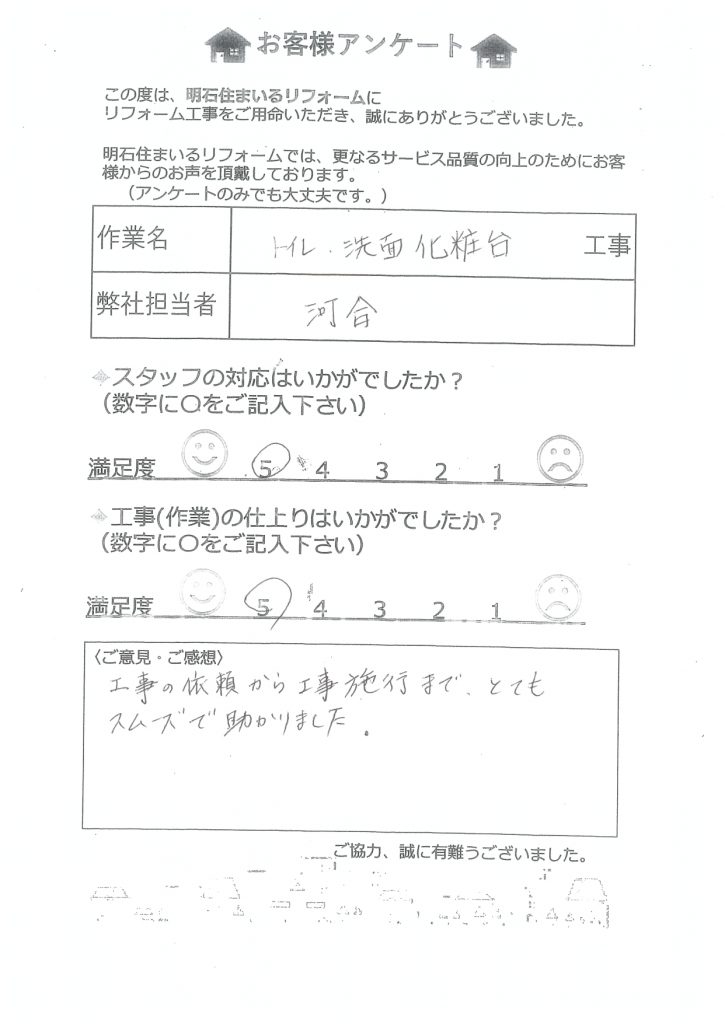 お客様アンケート
この度は、明石住まいるリフォームに
リフォーム工事をご用命いただき、誠にありがとうございました。
明石住まいるリフォームでは、更なるサービス品質の向上のためにお客
様からのお声を頂戴しております。
(アンケートのみでも大丈夫です。)
作業名 トイレ・洗面化粧台 工事
弊社担当者 河合
スタッフの対応はいかがでしたか？
(数字に〇をご記入下さい)
満足度 5 4 3 2 1
工事(作業)の仕上りはいかがでしたか？
(数字に〇をご記入下さい)
満足度 5 4 3 2 1
〈ご意見・ご感想〉
工事の依頼から工事施行まで、とても
スムーズで助かりました。
ご協力、誠に有難うございました。